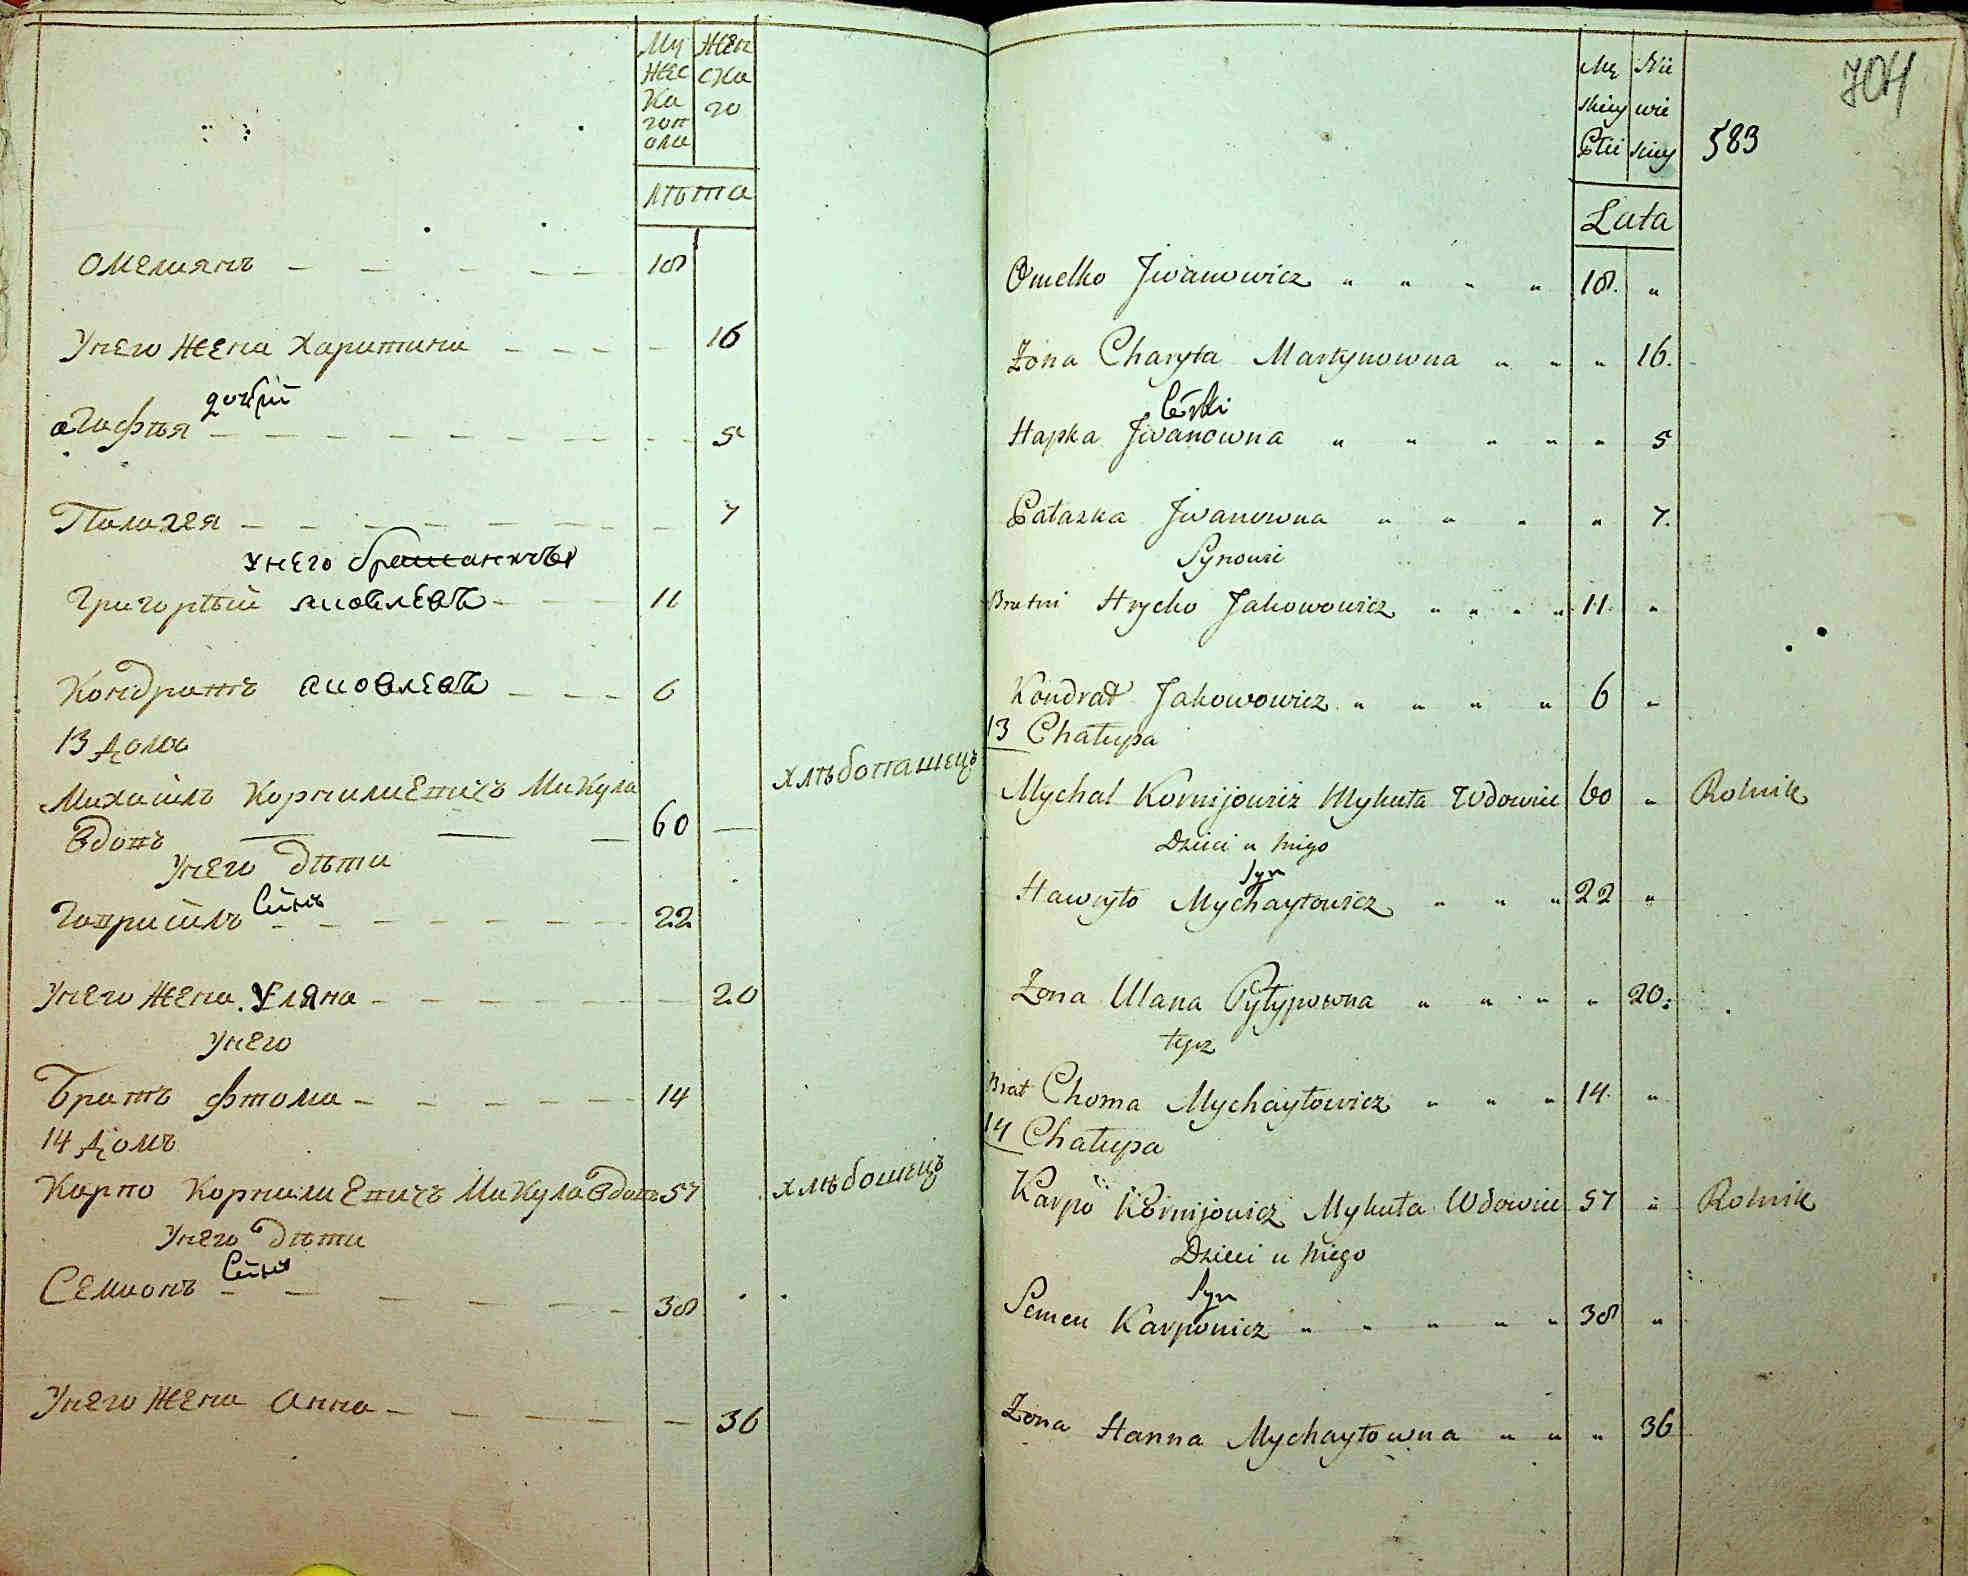 Му Жен
жес ска
ка го
гоп
ола
лѣта
Омелиянъ 18
У него жена Харитина 16
дочки
Агафья 5
Палагея 7
У него братаничъи
Григорѣй Яковлевъ 11
Кондратъ Яковлевъ 6
13 домъ
Михайлъ Корнилиевичъ Микула
Вдовъ 60 хлѣбопашецъ
У него дѣти
Сынъ
Гавриилъ 22
У него жена Уляна 20
У него
Братъ Фтома 14
14 домъ
Карпо Корнилиевичъ Микула Вдовъ 57 хлѣбошецъ
У него дѣти
Сынъ
Семионъ 38
У него жена Анна 36
704
583
Mę Nie
skiey wie
Płci skiey
Lata
Omelko Jwanowicz " " " " 18. "
Żona Charyta Martynowna " " " 16.
Córki
Hapka Jwanowna " " " " " 5
Pałazka Jwanowna " " " " 7.
Synowie
Bratni Hrycko Jakowowicz " " " " 11. "
Kondrat Jakowowicz " " " " 6 "
13 Chałupa
Mychał Kornijowicz Mykuła Wdowiec 60 " Rolnik
Dzieci u niego
Syn
Hawryło Mychayłowicz " " " 22 "
Żona Ulana Pyłypowna " " " " 20.
tegoż
Brat Choma Mychayłowicz " " " 14. "
14 Chałupa
Karpo Kornijowicz Mykuła Wdowiec 57 " Rolnik
Dzieci u niego
Syn
Semen Karpowicz " " " " " 38 "
Żona Hanna Mychayłowna " " " 36